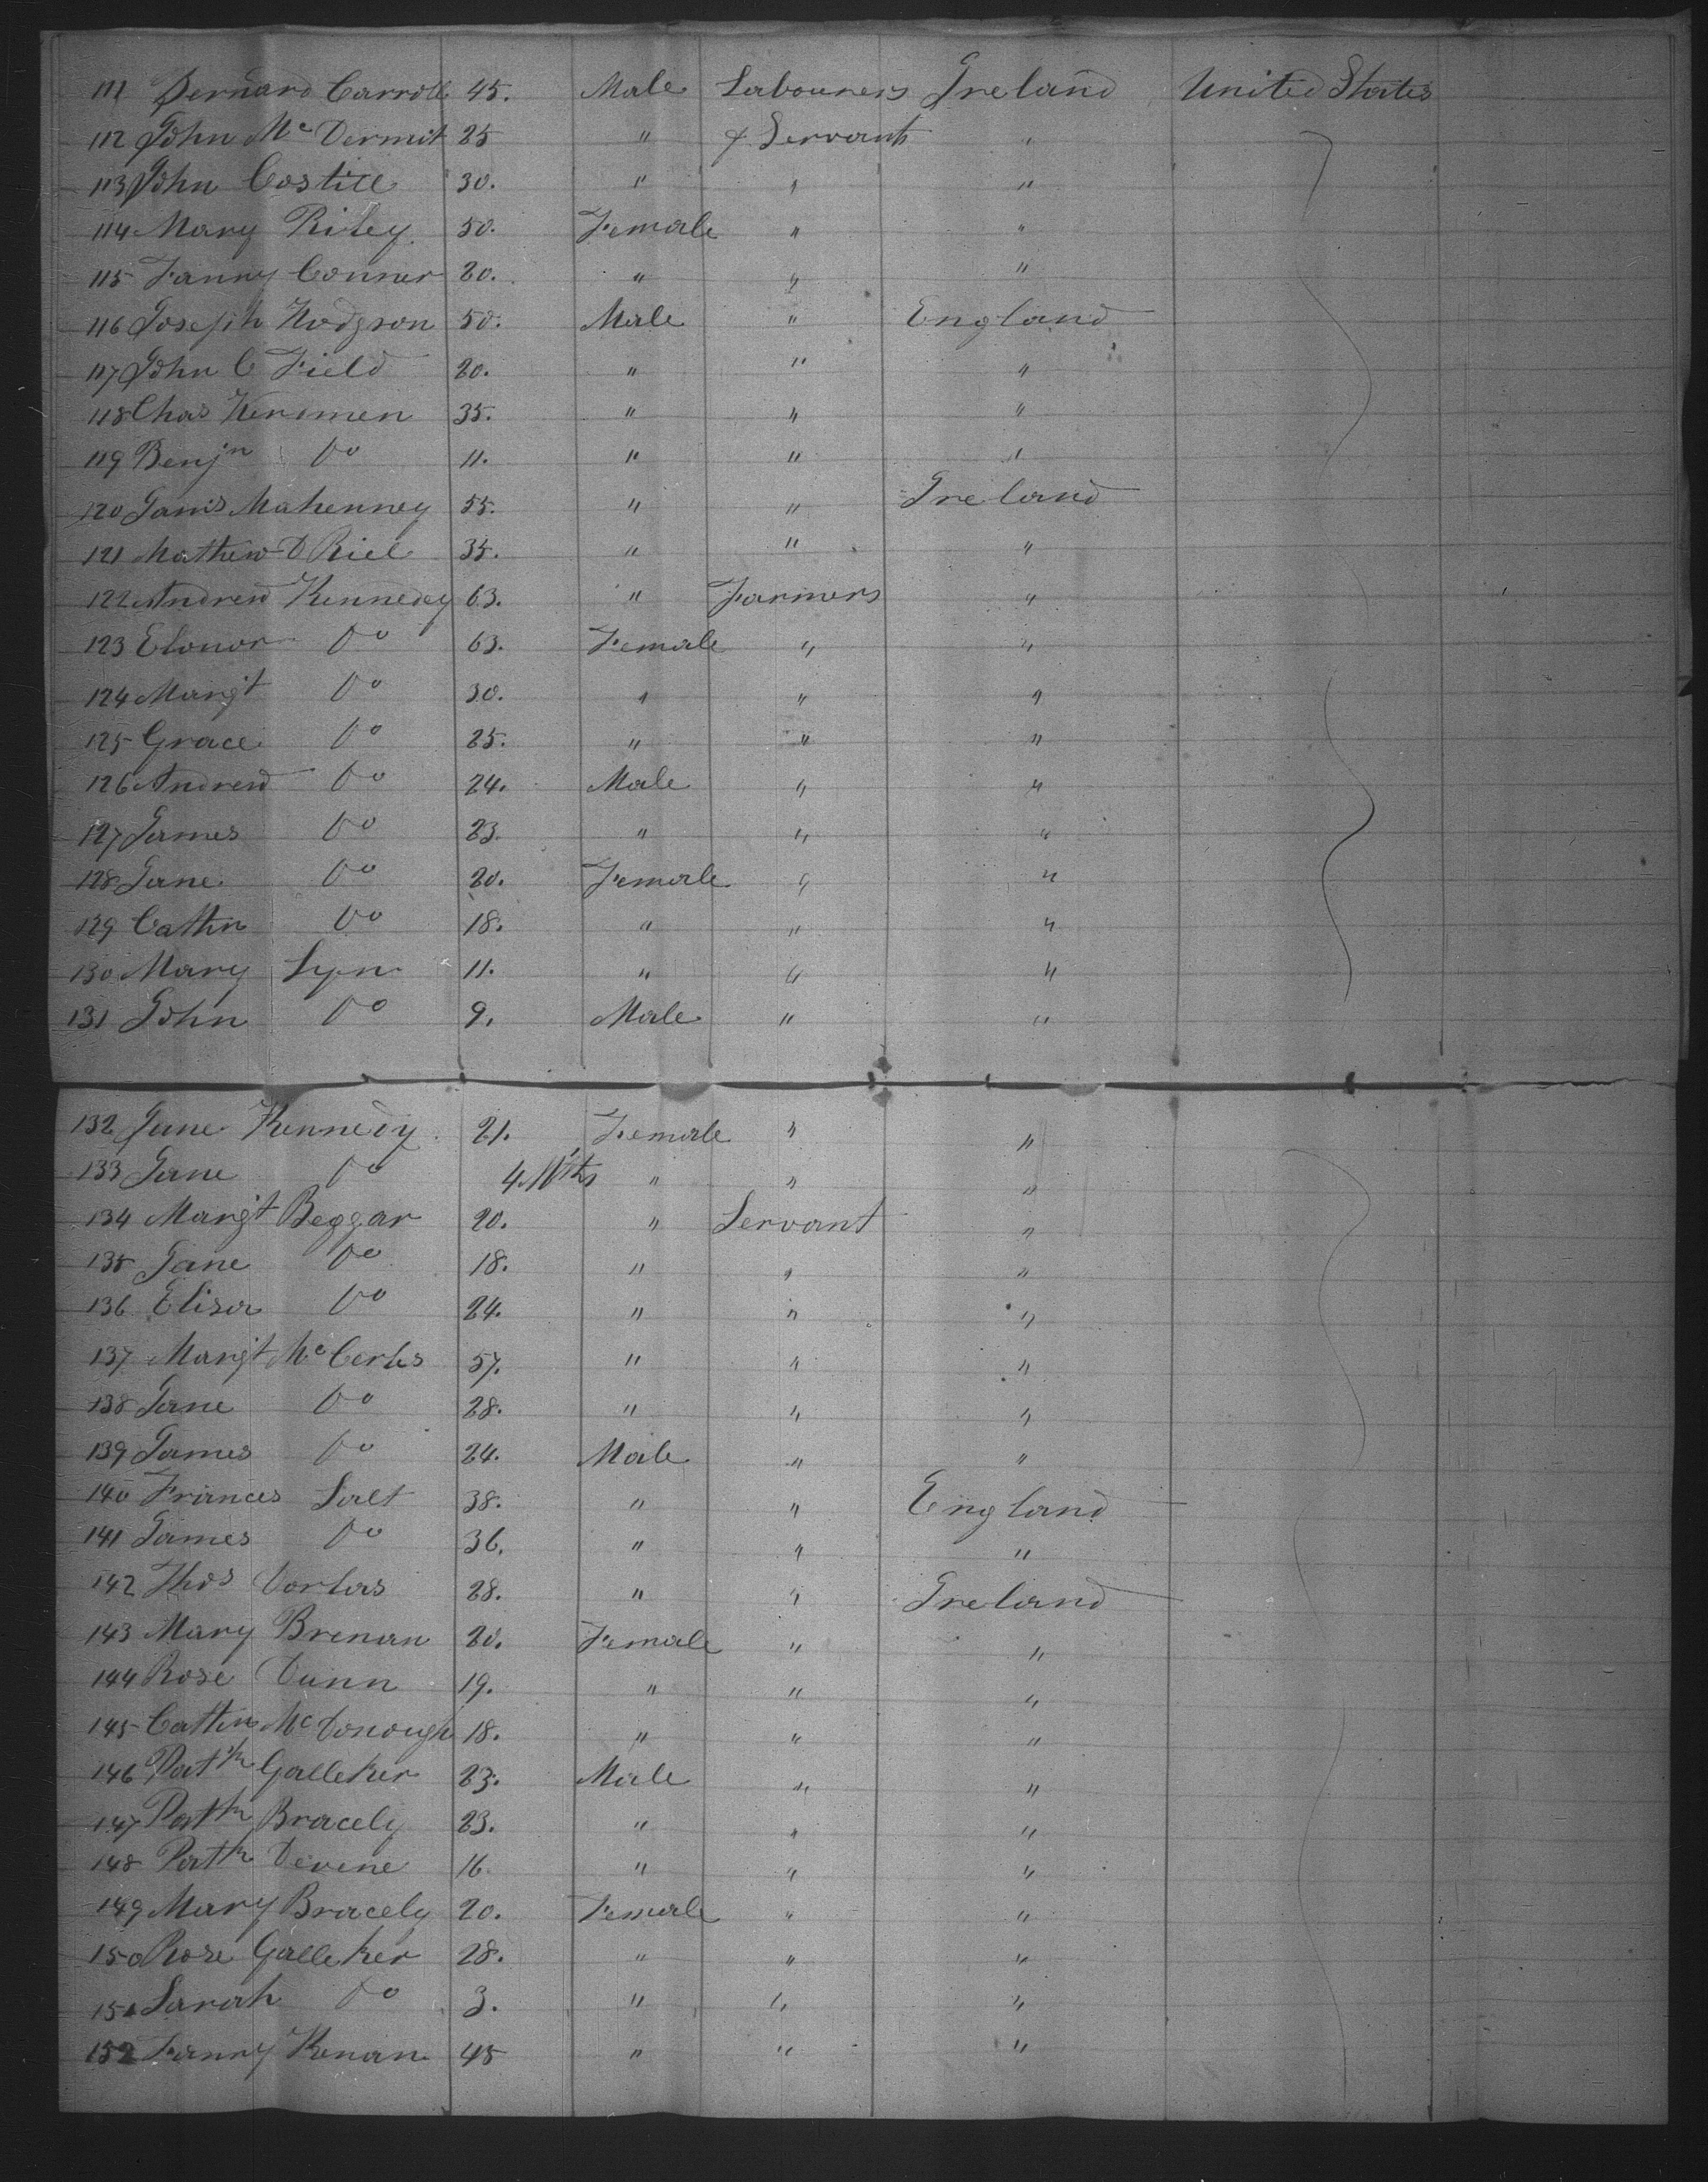 111 Bernard Carroll 45. Male Labourers Ireland United States
112 John Mc Dermit 25 " & Servants "
113 John Costill 30. " " "
114 Mary Riley 50. Female " "
115 Fanny Conner 20. " " "
116 Joseph Hodgson 50. Male " England
117 John C Field 20. " " "
118 Chas Kersmen 35. " " "
119 Benjn Do 11. " " "
120 Jams Mahenney 55. " " Ireland
121 Mathew O Riel 35. " " "
122 Andrew Kennedey 63. " Farmers "
123 Elonor Do 63. Female " "
124 Margt Do 30. " " "
125 Grace Do 25. " " "
126 Andrew Do 24. Male " "
127 James Do 23. " " "
128 Jane Do 20. Female " "
129 Cathn Do 18. " " "
130 Mary Lyn 11. " " "
131 John Do 9. Male " "
132 Jane Kennedy 21. Female " "
133 Jane Do 4 Mths " " "
134 Margt Beggar 20. " Servant "
135 Jane Do 18. " " "
136 Elisa Do 24. " " "
137 Margt Mc 57. " " "
138 Jane Do 28. " " "
139 James Do 24. Male " "
140 Frances Salt 38. " " England
141 James Do 36. " " "
142 Thos 28. " " Ireland
143 Mary Brenan 20. Female " "
144 Rose Dunn 19. " " "
145 Cathn Mc Donough 18. " " "
146 Patk Galleker 23. Male " "
147 Patk Bracely 23. " " "
148 Patk Devine 16. " " "
149 Mary Bracely 20. Female " "
150 Rose Galleker 28. " " "
151 Sarah Do 3. " " "
152 Fanny Kenan 45 " " "